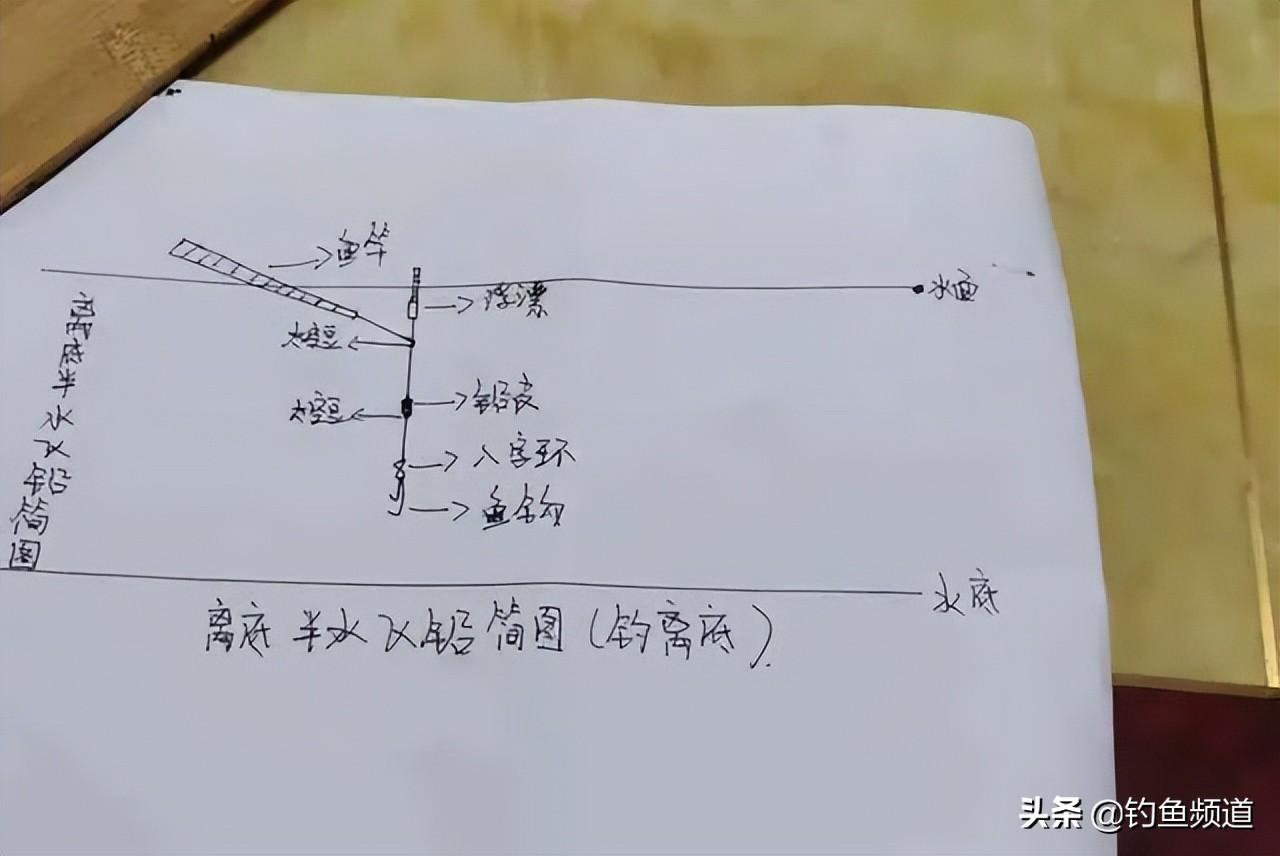 鱼竿
水面
浮漂
太空豆
铅皮
太空豆
八字环
鱼钩
离底半水双铅简图
水底
离底半水双铅简图(钓离底).
头条 @钓鱼频道